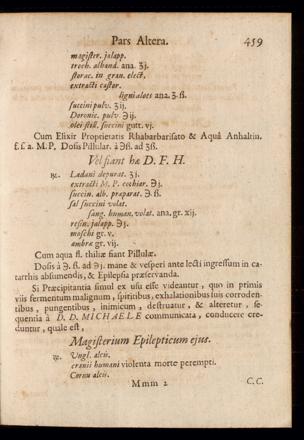 Pars Altera. 459
magister. jalapp.
troch. alhand. ana. ʒj.
storac. in gran. elect.
extracti castor.
ligni aloes ana. ʒ. ß.
succini pulv. ʒij.
Doronic. pulv. ℈ij.
olei still. succini gutt. vj.
Cum Elixir Proprietatis Rhabarbarisato & Aquâ Anhaltin.
f. l. a. M. P. Dosis Pillular. à ℈ß. ad ʒß.
Vel fiant hæ D. F. H.
℞. Ladani depurat. ʒj.
extracti M. P. cochiar. ℈j.
succin. alb. præparat. ℈. ß.
sal succini volat.
sang. human. volat. ana. gr. xij.
resin. jalapp. ℈j.
moschi gr. v.
ambræ gr. vij.
Cum aqua fl. thiliæ fiant Pillulæ.
Dosis à ℈. ß. ad ℈j. mane & vesperi ante lecti ingressum in ca-
tarrhis absumendis, & Epilepsia præservanda.
Si Præcipitantia simul ex usu esse videantur, quo in primis
viis fermentum malignum, spiritibus, exhalationibus suis corroden-
tibus, pungentibus, inimicum, destruatur, & alteretur, se-
quentia à D. D. MICHAELE communicata, conducere cre-
duntur, quale est,
Magisterium Epilepticum ejus.
℞. Ungl. alcis.
cranii humani violenta morte perempti.
Cornu alcis.
Mmm 2 C.C.